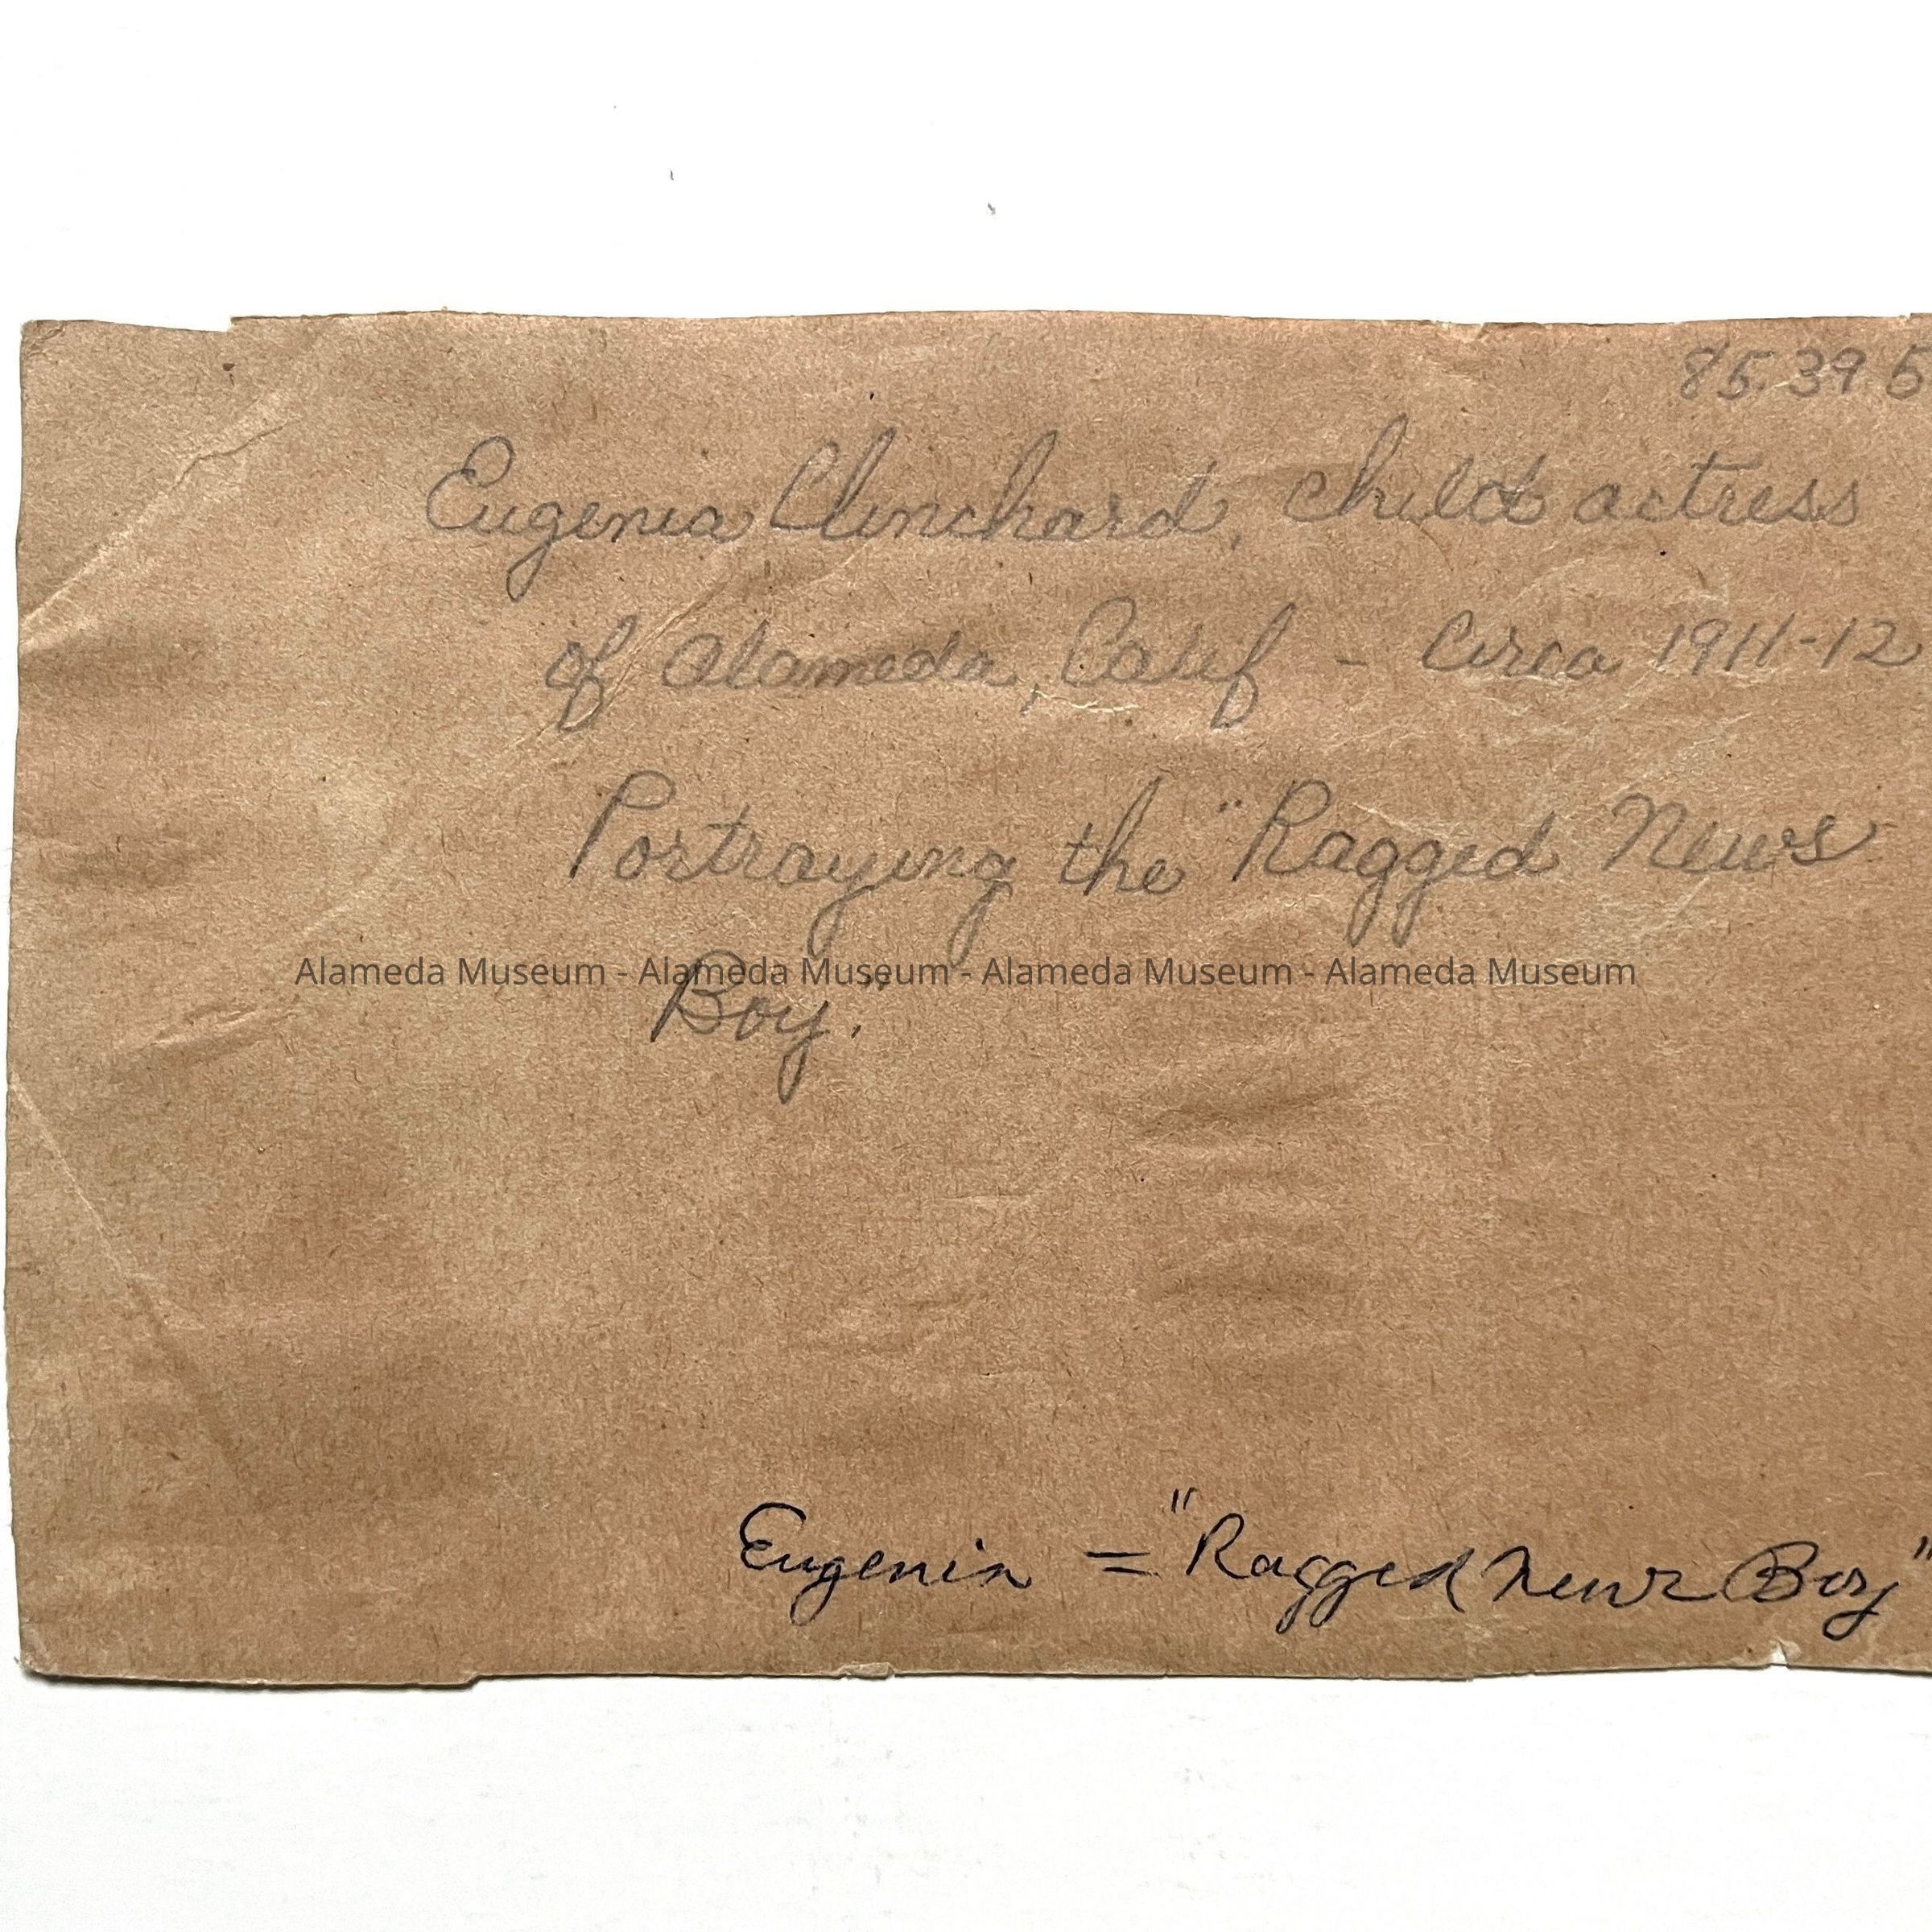 85.39 5
Eugenia Clinchard, child actress
of Alameda, Calif - Circa 1911-12
Portraying the "Ragged News
Alameda Museum - Alameda Museum - Alameda Museum - Alameda Museum
Boy."
Eugenia = "Ragged News Boy"